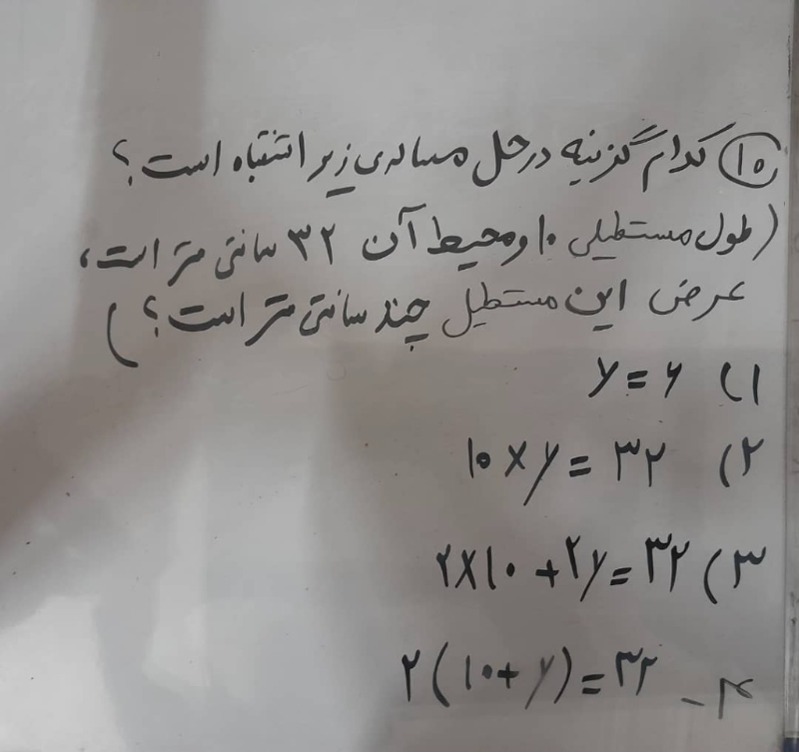 ۱۰ کدام گزینه در حل مساله‌ی زیر اشتباه است؟
(طول مستطیلی ۱۰ و محیط آن ۳۲ سانتی متر است،
عرض این مستطیل چند سانتی متر است؟)
۱) y = ۶
۲) ۱۰ × y = ۳۲
۳) ۲×۱۰ + ۲y = ۳۲
۴- ۲(۱۰+y) = ۳۲